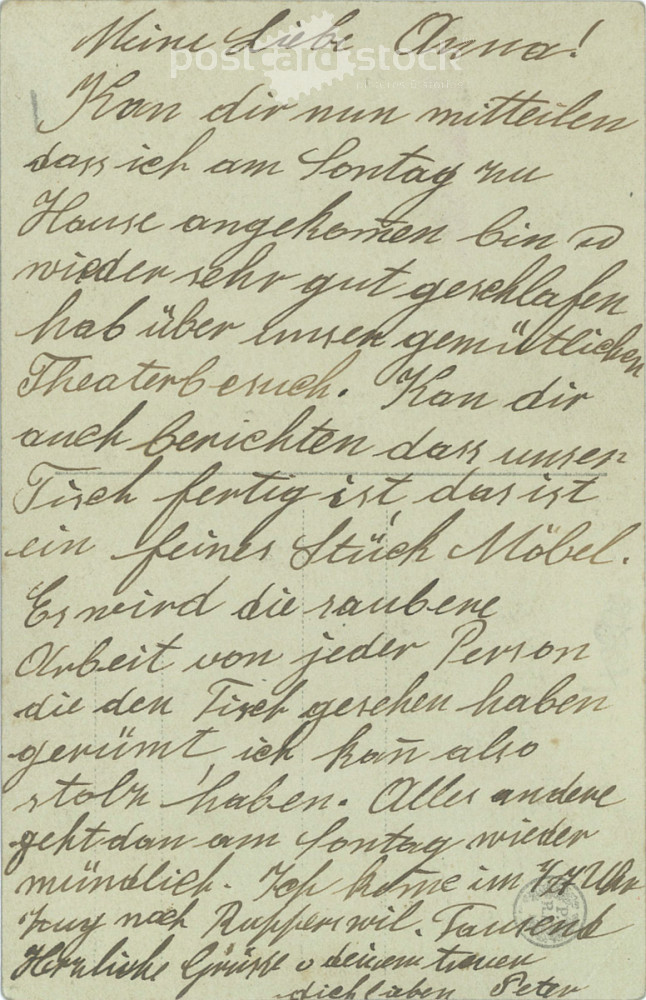 Meine Liebe Anna!
Kan dir nun mitteilen
dass ich am Sontag zu
Hause angekom̄en bin u
wieder sehr gut geschlafen
hab über unsen gemütlichen
Theaterbesuch. Kan dir
auch berichten dass unser
Tisch fertig ist, das ist
ein feines Stück Möbel.
Es wird die saubere
Arbeit von jeder Person
die den Tisch gesehen haben
gerümt, ich kan̄ also
stolz haben. Alles andere
geht dan am Sontag wieder
mündlich. Ich kom̄e im Uhr
Zug nach Rupperswil. Tausend
Herzliche Grüsse v deinem treuen
dich lieben Peter
postcard.stock